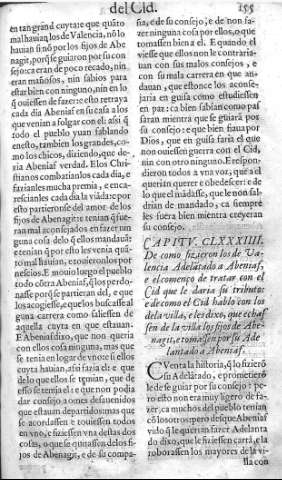 del Cid. 255
en tan grand cuyta e que quãto
mal hauiã los de Valencia, nõ lo
hauian sinõ por los fijos de Abe
nagit, porq̃ se guiaron por su con
sejo: ca eran de poco recado, nin
eran mañosos, nin sabios para
estar bien con ninguno, nin en lo
q̃ ouiessen de fazer: e ehto retraya
cada dia Abeniaf en su casa a los
que venian a folgar con el: assi q̃
todo el pueblo yuan fablando
enesto, tambien los grandes, co-
mo los chicos, diziendo, que de-
zia Abeniaf verdad. E los Chri
stianos combatianlos cada dia, e
fazianles mucha premia, e en ca-
rescianles cada dia la viãda: e por
esto partieronse del amor de los
fijos de Abenagit: e tenian q̃ fue-
ran mal aconsejados en fazer nin
guna cosa delo q̃ ellos mandauã:
e tenian q̃ por esto les venia quã-
to mal hauian, e touieron los por
nescios. E mouio luego el pueblo
todo cõtra Abeniaf, q̃ los perdo-
nasse porq̃ se partieran del, e que
los acogiesse, e que los buscasse al
guna carrera como saliessen de
aquella cuyta en que estauan.
E Abeniaf dixo, que non queria
con ellos cosa ninguna, mas que
se tenia en logar de vno: e si ellos
cuyta hauian, assi fazia el: e que
delo que ellos se temian, que de
esso se temia el: e que non podia
dar consejo a omes desauenidos
que estauan departidos: mas que
se acordassen e touiessen todos
en vno, e fiziessen vna destas dos
cosas, o que se quitassen delos fi-
jos de Abenagit, e de su compa-
ñia, e de su consejo; e de non fa-
zer ninguna cosa por ellos, o que
tomassen bien a el. E quando el
viesse que ellos non le contraria-
uan con sus malos consejos, e
con su mala carrera en que an-
dauan, que estonce los aconse-
jaria en guisa como estudiessen
en paz: ca bien sabian como pas
saran mientra que se guiarã por
su consejo: e que bien fiaua por
Dios, que en guisa faria el que
non ouiessen guerra con el Cid,
nin con otro ninguno. E respon
dieron todos a vna voz, que a el
querian querer e obedescer: e de
lo que el mãdasse, que le non sal-
drian de mandado, ca siempre
les fuera bien mientra creyeran
su consejo.
CAPITV. CLXXXIIII.
De como fizieron los de Va-
lencia Adelãtado a Abeniaf,
e el començo de tratar con el
Cid que le daria su tributo:
e de como el Cid hablo con los
de la villa, e les dixo, que echas
sen de la villa los fijos de Abe-
nagit, e tomassen por su Ade
lantado a Abeniaf.
CVenta la historia, q̃ lo fizierõ
su Adelãtado, e prometierõ
le de se guiar por su consejo: pe
ro esto non era muy ligero de fa-
zer, ca muchos del pueblo tenian
cõ los otros: pero desque Abeniaf
vido q̃ le querian fazer Adelanta
do dixo, que le fiziessen carta, e la
roborassen los mayores de la vi-
lla con